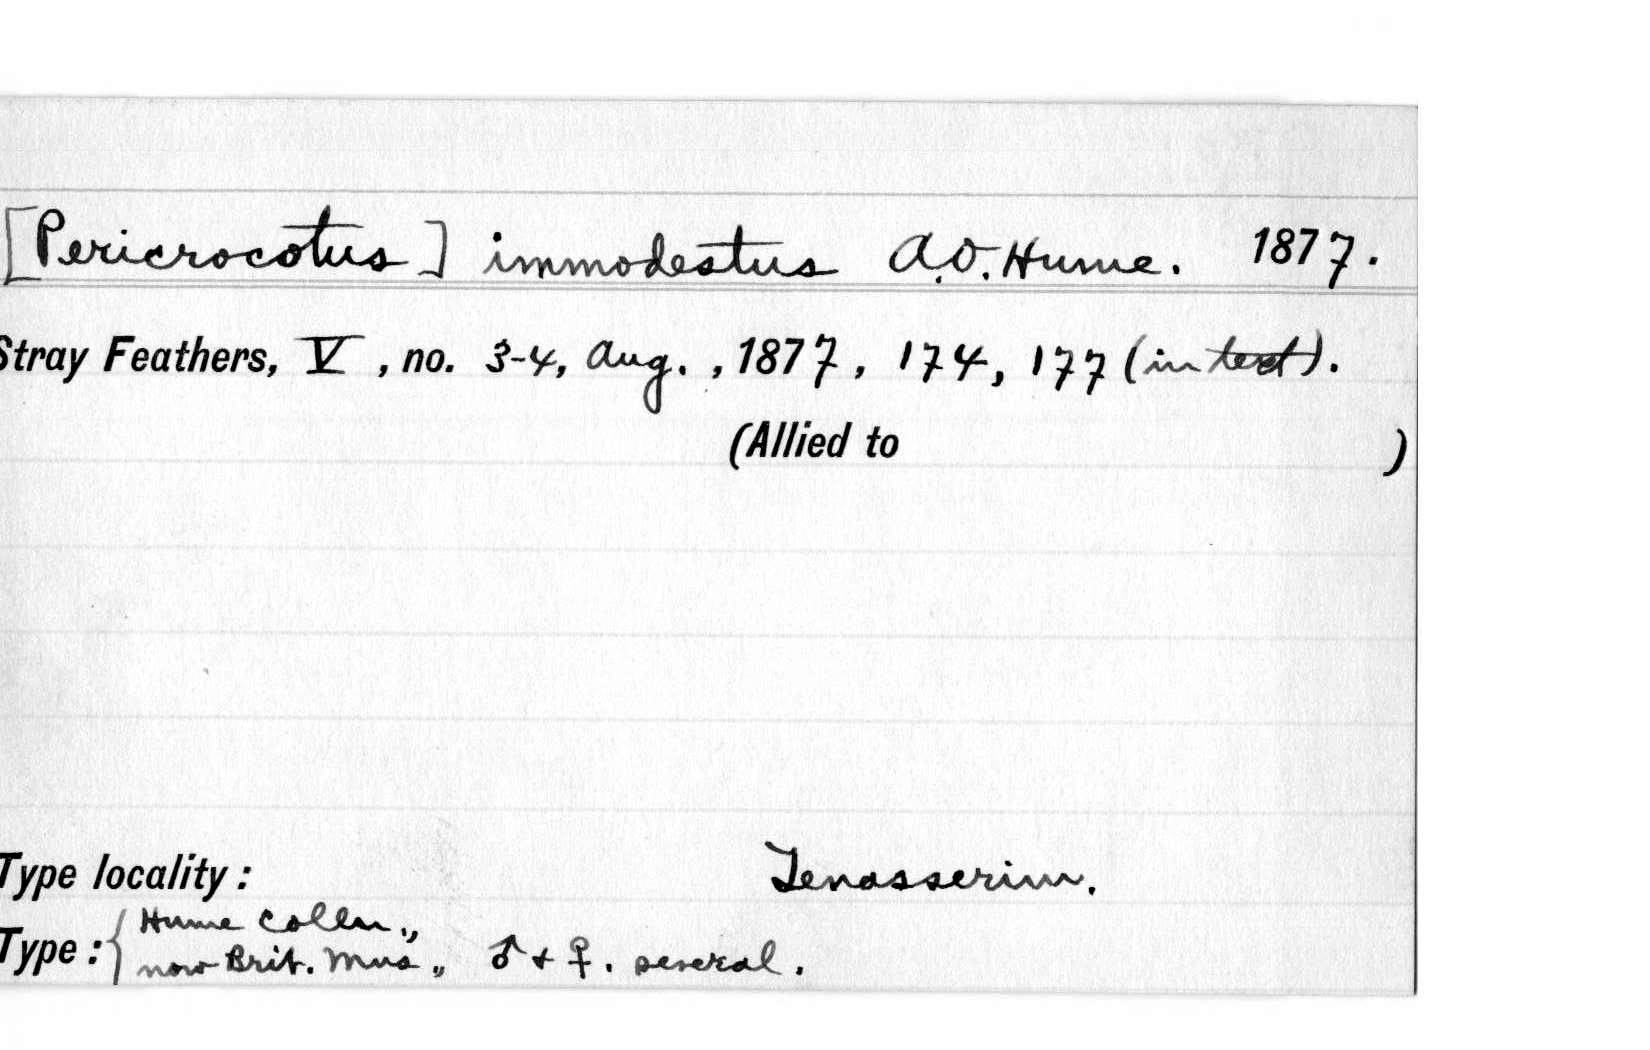 [Pericrocotus] immodestus A.O. Hume. 1877.
Stray Feathers, V, no. 3-4, Aug., 1877, 174, 177 (in text).
(Allied to )
Type locality: Tenasserim.
Type: { Hume Colln.,
now Brit. Mus., ♂ + ♀. several.